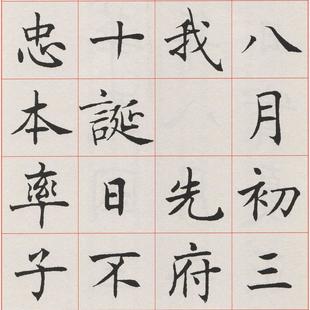 八月初三
我先府
十誕日不
忠本率子